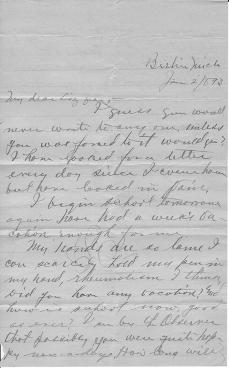 Mich
Jan 2/1893
My dear
I guess you would
never write to any one, unless
you was forced to it would you?
I have looked for a letter
every day since I came home
but have looked in vain,
I begin school tomorrow
again have had a week's va
cation enough for me.
My hands are so lame I
can scarcely hold my pen in
my hand, rheumatism I think,
Did you have any vacation? And
how is school now, good
as ever? In the Observer
that possibly you were quite
now-a-days, How long will